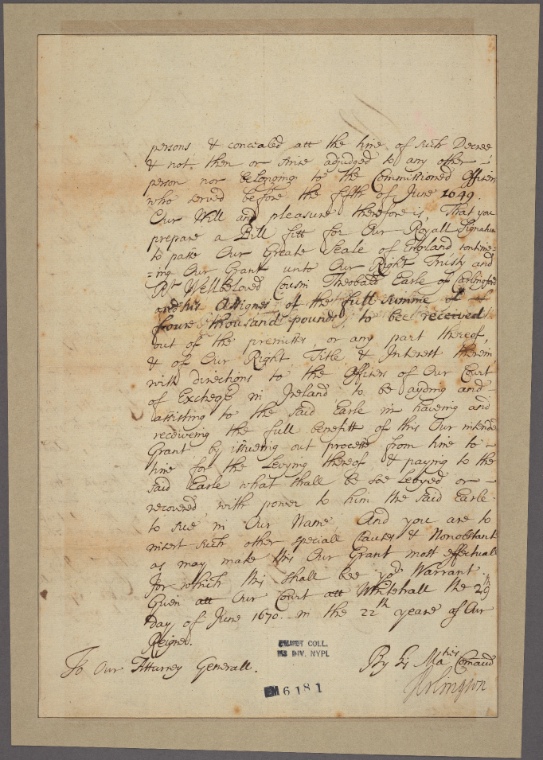 persons & concealed att the time of such Decree
& not then or since adjudged to any other -
person nor belonging to the Commissioned Officers
who served before the fifth of June 1649.
Our Will and pleasure therefore is, That you
prepare a Bill fitt for Our Royall Signature
to passe Our Greate Seale of England conteine-
=ing Our Grant unto Our Right Trusty and
Rt Wellbeloved Cousin Theobald Earle of Carlingford
and his Assignes of the full summe of
foure thousand pounds, to bee received
out of the premisses or any part thereof,
& of Our Right Title & Interest therein
with directions to the Officers of Our Court
of Excheqr in Ireland to be ayding and
assisting to the said Earle in haveing and
receiveing the full benefitt of this Our intended
Grant by issueing out processe from time to -
time for the Levying thereof & paying to the
said Earle what shall be soe Levyed or -
recovered, with power to him the said Earle
to sue in Our Name. And you are to
insert such other speciall Clauses & Nonobstantes
as may make this Our Grant most effectuall
For which this shall bee yor Warrant.
Given att Our Court att Whitehall the 29th
day of June 1670. in the 22th yeare of Our
Reigne.
To Our Atturney Generall.
By his Maties Comand
Arlington
EMMET COLL.
MS DIV. NYPL
EM6181